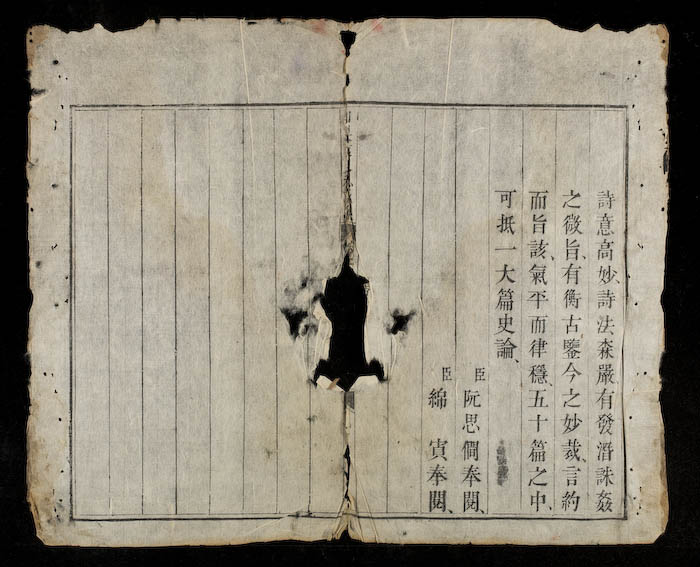 詩意高妙、詩法森嚴、有發潛誅姦
之微旨、有衡古鑒今之妙裁、言約
而旨該、氣平而律穩、五十篇之中、
可抵一大篇史論、
臣阮思僩奉閱、
臣綿寊奉閱、